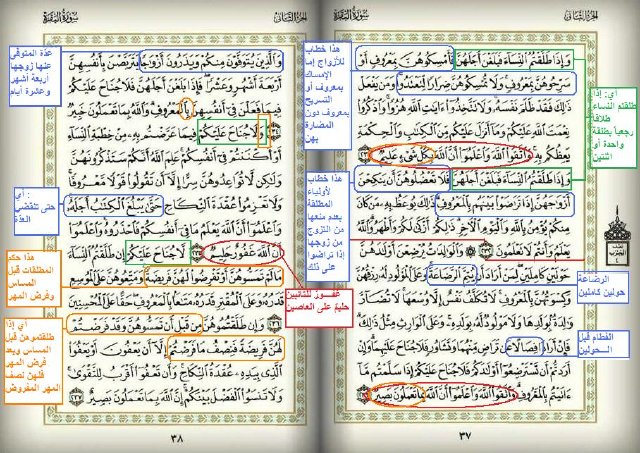 سُورَةُ البَقَرَةِ
الجُزْءُ الثَّانِي
وَإِذَا طَلَّقْتُمُ النِّسَاءَ فَبَلَغْنَ أَجَلَهُنَّ فَأَمْسِكُوهُنَّ بِمَعْرُوفٍ أَوْ
سَرِّحُوهُنَّ بِمَعْرُوفٍ وَلَا تُمْسِكُوهُنَّ ضِرَارًا لِّتَعْتَدُوا وَمَن يَفْعَلْ
ذَٰلِكَ فَقَدْ ظَلَمَ نَفْسَهُ وَلَا تَتَّخِذُوا آيَاتِ اللَّهِ هُزُوًا وَاذْكُرُوا
نِعْمَتَ اللَّهِ عَلَيْكُمْ وَمَا أَنزَلَ عَلَيْكُم مِّنَ الْكِتَابِ وَالْحِكْمَةِ
يَعِظُكُم بِهِ وَاتَّقُوا اللَّهَ وَاعْلَمُوا أَنَّ اللَّهَ بِكُلِّ شَيْءٍ عَلِيمٌ ٢٣١
وَإِذَا طَلَّقْتُمُ النِّسَاءَ فَبَلَغْنَ أَجَلَهُنَّ فَلَا تَعْضُلُوهُنَّ أَن يَنكِحْنَ
أَزْوَاجَهُنَّ إِذَا تَرَاضَوْا بَيْنَهُم بِالْمَعْرُوفِ ذَٰلِكَ يُوعَظُ بِهِ مَن كَانَ
مِنكُمْ يُؤْمِنُ بِاللَّهِ وَالْيَوْمِ الْآخِرِ ذَٰلِكُمْ أَزْكَىٰ لَكُمْ وَأَطْهَرُ وَاللَّهُ
يَعْلَمُ وَأَنتُمْ لَا تَعْلَمُونَ ٢٣٢ وَالْوَالِدَاتُ يُرْضِعْنَ أَوْلَادَهُنَّ
حَوْلَيْنِ كَامِلَيْنِ لِمَنْ أَرَادَ أَن يُتِمَّ الرَّضَاعَةَ وَعَلَى الْمَوْلُودِ لَهُ رِزْقُهُنَّ
وَكِسْوَتُهُنَّ بِالْمَعْرُوفِ لَا تُكَلَّفُ نَفْسٌ إِلَّا وُسْعَهَا لَا تُضَارَّ
وَالِدَةٌ بِوَلَدِهَا وَلَا مَوْلُودٌ لَّهُ بِوَلَدِهِ وَعَلَى الْوَارِثِ مِثْلُ ذَٰلِكَ
فَإِنْ أَرَادَا فِصَالًا عَن تَرَاضٍ مِّنْهُمَا وَتَشَاوُرٍ فَلَا جُنَاحَ عَلَيْهِمَا وَإِنْ
أَرَدتُّمْ أَن تَسْتَرْضِعُوا أَوْلَادَكُمْ فَلَا جُنَاحَ عَلَيْكُمْ إِذَا سَلَّمْتُم مَّا
آتَيْتُم بِالْمَعْرُوفِ وَاتَّقُوا اللَّهَ وَاعْلَمُوا أَنَّ اللَّهَ بِمَا تَعْمَلُونَ بَصِيرٌ ٢٣٣
٣٧
أي: إذا
طلقتم النساء
طلاقا
رجعياً بطلقة
واحدة أو
اثنتين
الرضاعة
حولين كاملين
الفطام قبل
الحولين
هذا خطاب
للأزواج إما
الإمساك
بمعروف أو
التسريح
بمعروف دون
المضارة
بهن
هذا خطاب
لأولياء
المطلقة
بعدم منعها
من التزوج
من زوجها
إذا تراضوا
على ذلك
غفور للتائبين
حليم على العاصين
سُورَةُ البَقَرَةِ
الجُزْءُ الثَّانِي
وَالَّذِينَ يُتَوَفَّوْنَ مِنكُمْ وَيَذَرُونَ أَزْوَاجًا يَتَرَبَّصْنَ بِأَنفُسِهِنَّ
أَرْبَعَةَ أَشْهُرٍ وَعَشْرًا فَإِذَا بَلَغْنَ أَجَلَهُنَّ فَلَا جُنَاحَ عَلَيْكُمْ
فِيمَا فَعَلْنَ فِي أَنفُسِهِنَّ بِالْمَعْرُوفِ وَاللَّهُ بِمَا تَعْمَلُونَ خَبِيرٌ
٢٣٤ وَلَا جُنَاحَ عَلَيْكُمْ فِيمَا عَرَّضْتُم بِهِ مِنْ خِطْبَةِ النِّسَاءِ
أَوْ أَكْنَنتُمْ فِي أَنفُسِكُمْ عَلِمَ اللَّهُ أَنَّكُمْ سَتَذْكُرُونَهُنَّ
وَلَٰكِن لَّا تُوَاعِدُوهُنَّ سِرًّا إِلَّا أَن تَقُولُوا قَوْلًا مَّعْرُوفًا
وَلَا تَعْزِمُوا عُقْدَةَ النِّكَاحِ حَتَّىٰ يَبْلُغَ الْكِتَابُ أَجَلَهُ
وَاعْلَمُوا أَنَّ اللَّهَ يَعْلَمُ مَا فِي أَنفُسِكُمْ فَاحْذَرُوهُ وَاعْلَمُوا
أَنَّ اللَّهَ غَفُورٌ حَلِيمٌ ٢٣٥ لَّا جُنَاحَ عَلَيْكُمْ إِن طَلَّقْتُمُ النِّسَاءَ
مَا لَمْ تَمَسُّوهُنَّ أَوْ تَفْرِضُوا لَهُنَّ فَرِيضَةً وَمَتِّعُوهُنَّ عَلَى الْمُوسِعِ
قَدَرُهُ وَعَلَى الْمُقْتِرِ قَدَرُهُ مَتَاعًا بِالْمَعْرُوفِ حَقًّا عَلَى الْمُحْسِنِينَ
٢٣٦ وَإِن طَلَّقْتُمُوهُنَّ مِن قَبْلِ أَن تَمَسُّوهُنَّ وَقَدْ فَرَضْتُمْ
لَهُنَّ فَرِيضَةً فَنِصْفُ مَا فَرَضْتُمْ إِلَّا أَن يَعْفُونَ أَوْ يَعْفُوَ
الَّذِي بِيَدِهِ عُقْدَةُ النِّكَاحِ وَأَن تَعْفُوا أَقْرَبُ لِلتَّقْوَىٰ
وَلَا تَنسَوُا الْفَضْلَ بَيْنَكُمْ إِنَّ اللَّهَ بِمَا تَعْمَلُونَ بَصِيرٌ ٢٣٧
٣٨
عدة المتوفى
عنها زوجها
أربعة أشهر
وعشرة أيام
أي :
حتى تنقضي
العدة
هذا حكم
المطلقات قبل
المساس
وفرض المهر
أي إذا
طلقتموهن قبل
المساس وبعد
فرض المهر
فلهن نصف
المهر المفروض